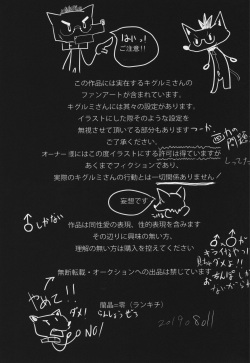 はいっ
ご注意!!
この作品には実在するキグルミさんの
ファンアートが含まれています。
キグルミさんには其々の設定があります。
イラストにした際そのような設定を
無視させて頂いてる部分もあります
つーか
ご了承ください。
オーナー様にはこの度イラストにする許可は得ていますが
あくまでフィクションであり、
実際のキグルミさんの行動とは一切関係ありません!
妄想です
♂しかない
作品は同性愛の表現、性的表現を含みます
その辺りに興味の無い方、
理解の無い方は購入を控えてください
無断転載・オークションへの出品は禁止しています
やめて!!
ダメ!
NO!
闇晶=零(ランキチ)
2019.08.11